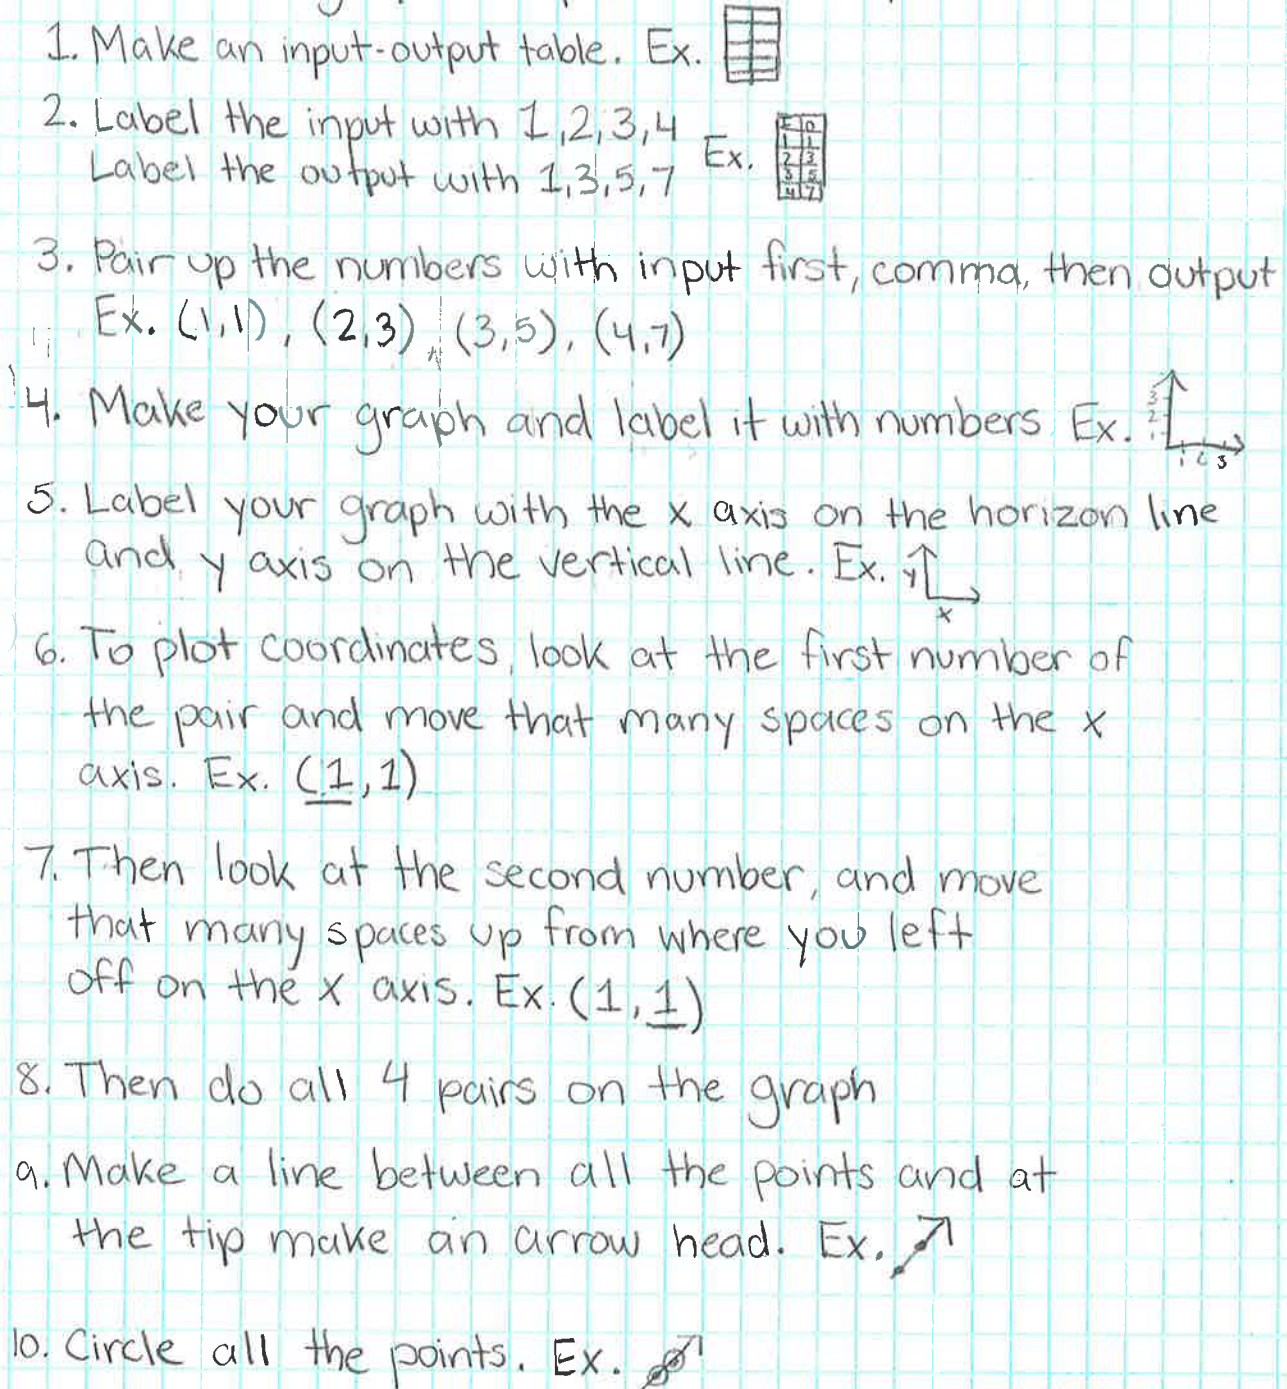 1. Make an input-output table. Ex.
2. Label the input with 1,2,3,4
Label the output with 1,3,5,7 Ex.
I O
1 1
2 3
3 5
4 7
3. Pair up the numbers with input first, comma, then output
Ex. (1,1), (2,3), (3,5), (4,7)
4. Make your graph and label it with numbers Ex.
3
2
1
1 2 3
5. Label your graph with the x axis on the horizon line
and y axis on the vertical line. Ex.
y
x
6. To plot coordinates, look at the first number of
the pair and move that many spaces on the x
axis. Ex. (1,1)
7. Then look at the second number, and move
that many spaces up from where you left
off on the x axis. Ex. (1,1)
8. Then do all 4 pairs on the graph
9. Make a line between all the points and at
the tip make an arrow head. Ex.
10. Circle all the points. Ex.